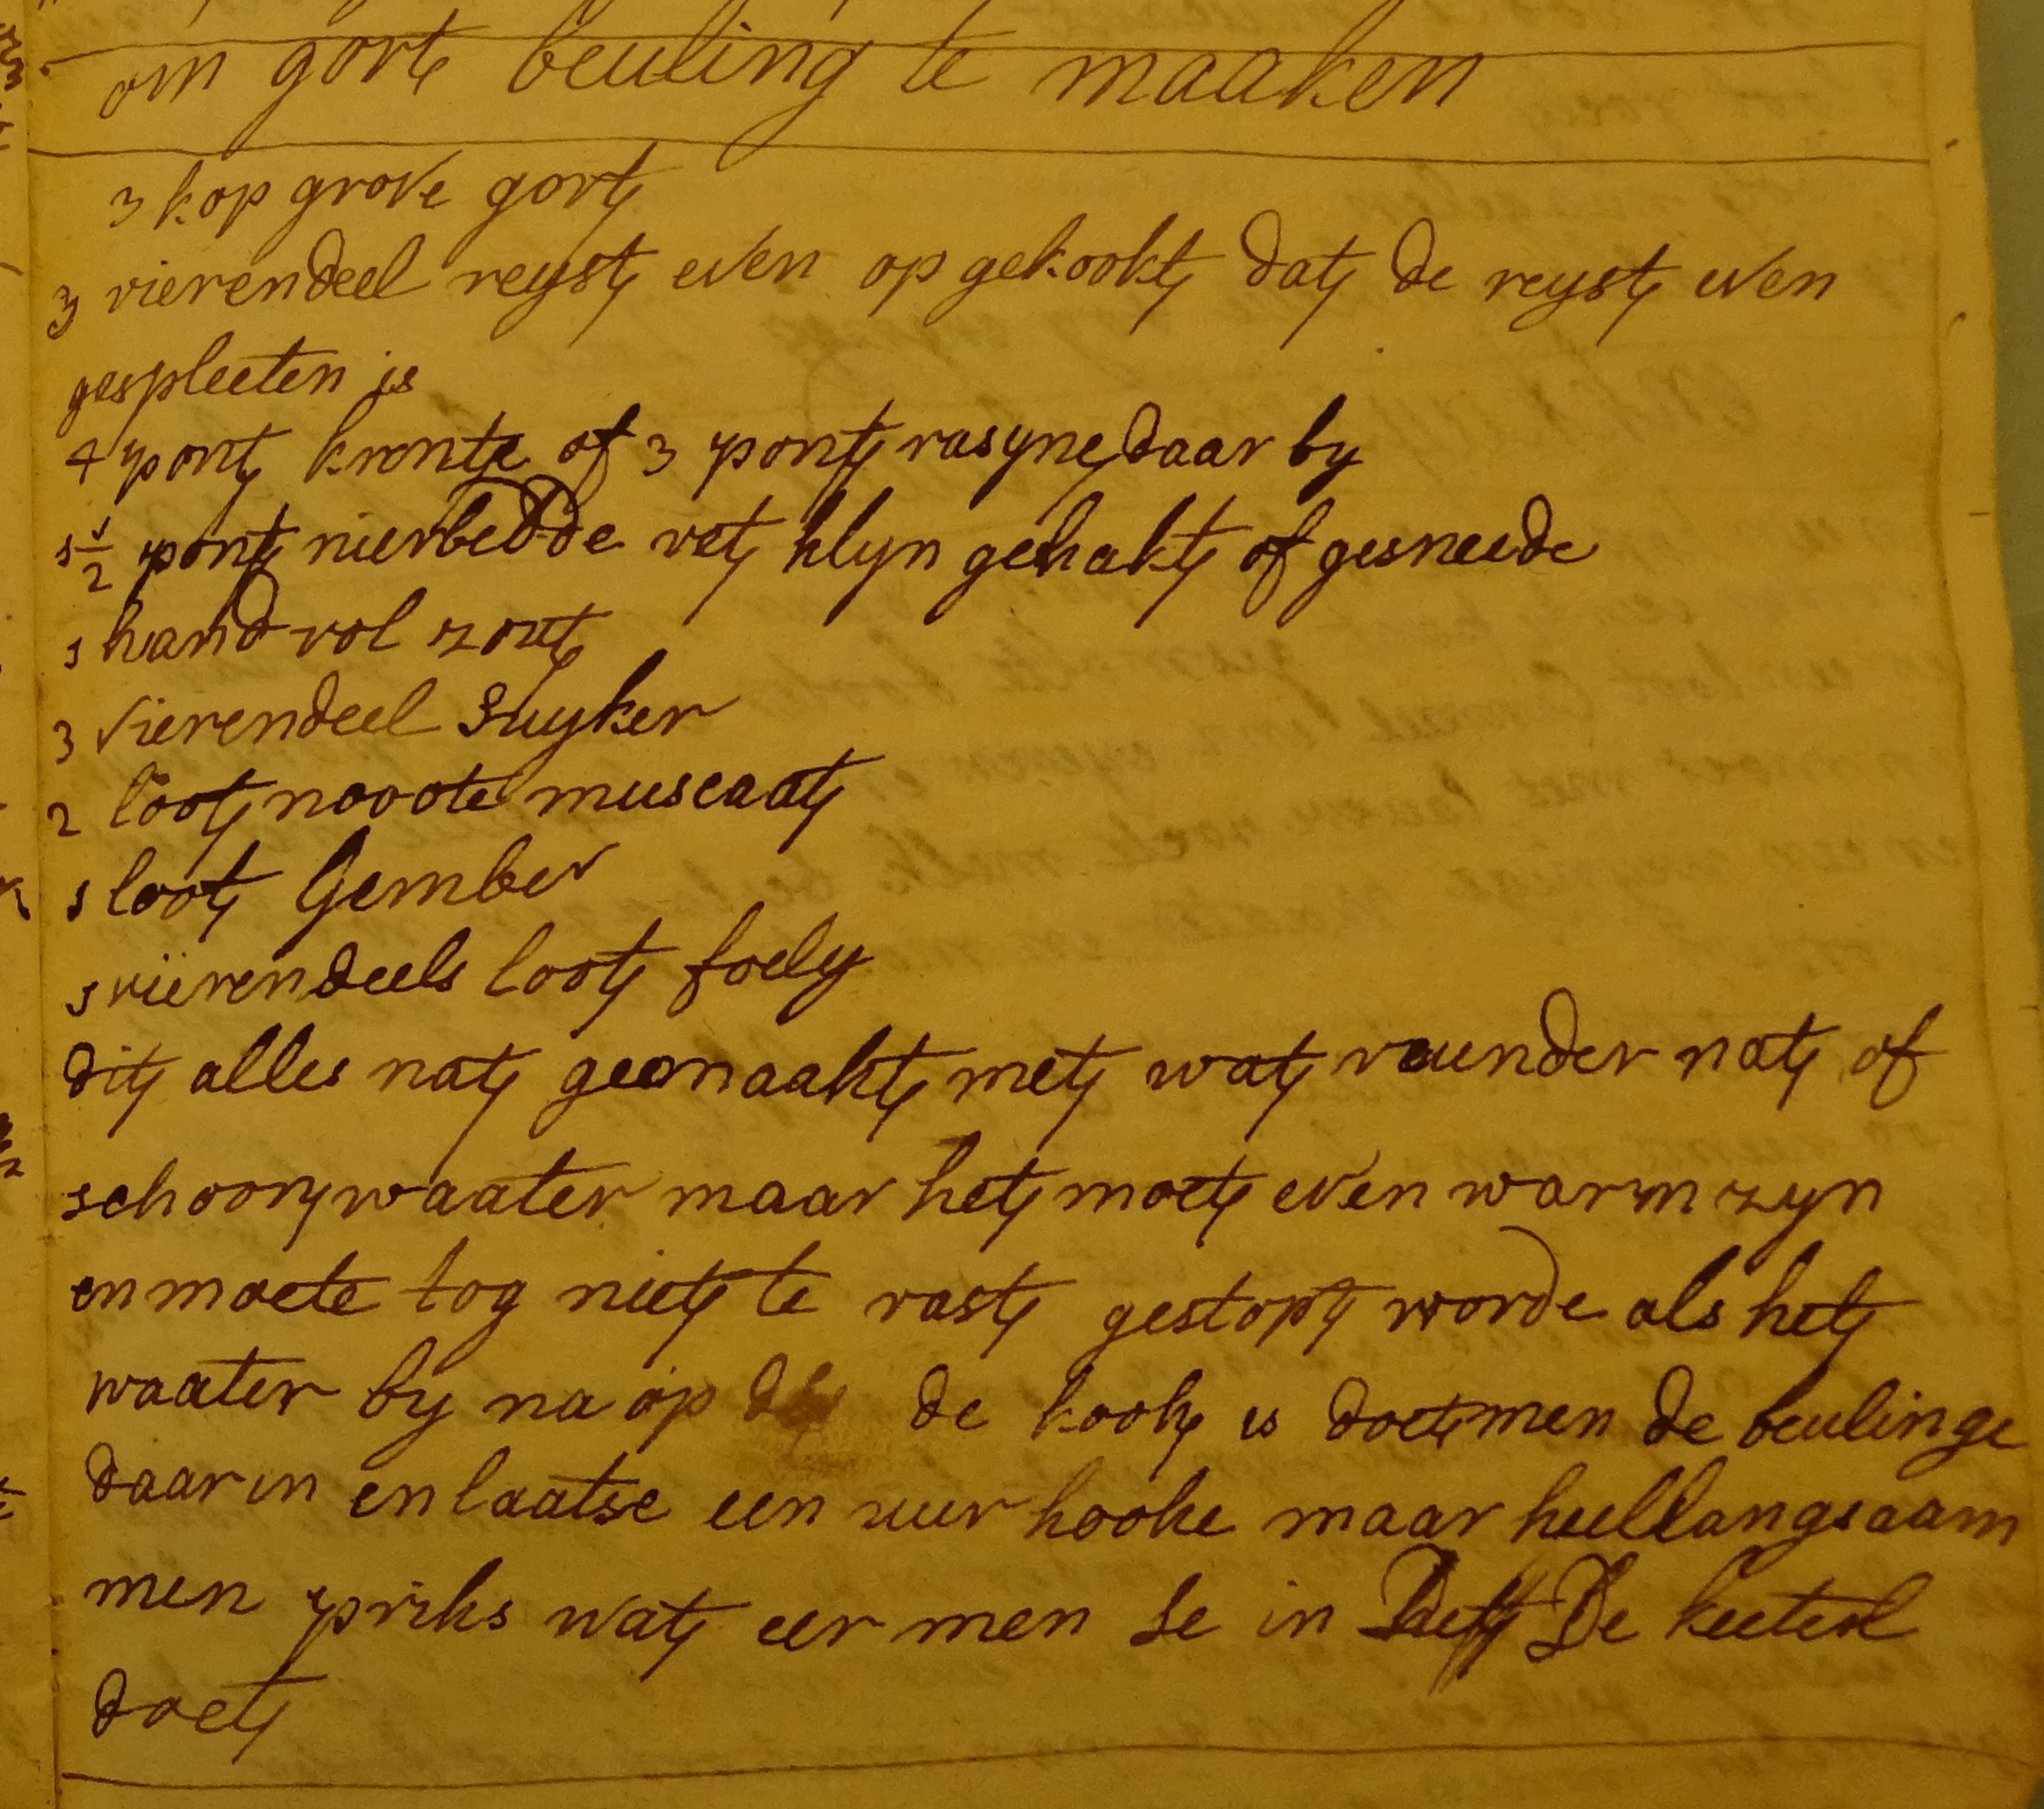 om gort beuling te maaken
3 kop grove gort
3 vierendeel reyst even op gekookt dat de reyst even
gespleeten is
4 pont krente of 3 pont rasyne daar by
1 1/2 pont nierbedde vet klyn gehakt of gesneede
1 hand vol zout
3 vierendeel Suyker
2 loot noote muscaat
1 loot Gember
1 vierendeels loot foely
dit alles nat gemaakt met wat runder nat of
schoon waater maar het moet even warm zyn
en moete tog niet te vast gestopt worde als het
waater by na op de kook is doet men de beulinge
daar in en laatse een uur kooke maar heel langsaam
men priks wat eer men se in De keetel
doet